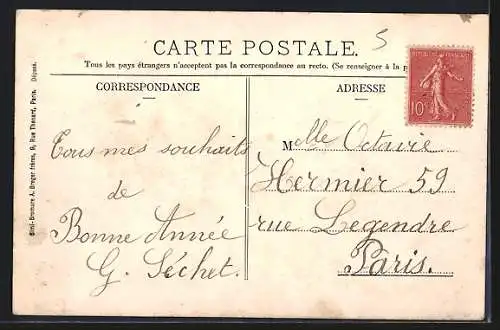 CARTE POSTALE.
5
Tous les pays étrangers n'acceptent pas la correspondance au recto. (Se renseigner à la
CORRESPONDANCE
ADRESSE
RÉPUBLIQUE FRANÇAISE
10c
Tous mes souhaits
de
Bonne Année
G. Séchet.
Melle Octavie
Hermier 59
rue Legendre
Paris.
Simi-Bromure A. Breger frères, 9, Rue Thénard, Paris. Déposé.